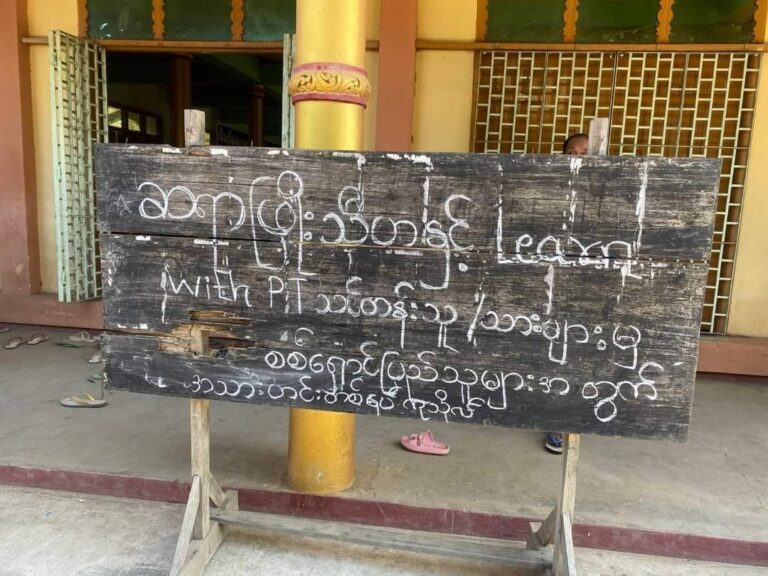 ဆရာဖြိုးသီဟနှင့် Learn
with PT သင်တန်းသူ/သားများမှ
စစ်ရှောင်ပြည်သူများအတွက်
အသားဟင်းတစ်နပ် ကုသိုလ်